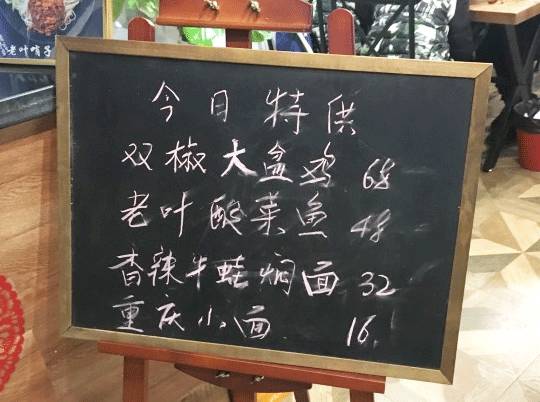 老叶哨子
今日特供
双椒大盆鸡 68
老叶酸菜鱼 48
香辣牛蛙焖面 32
重庆小面 16.